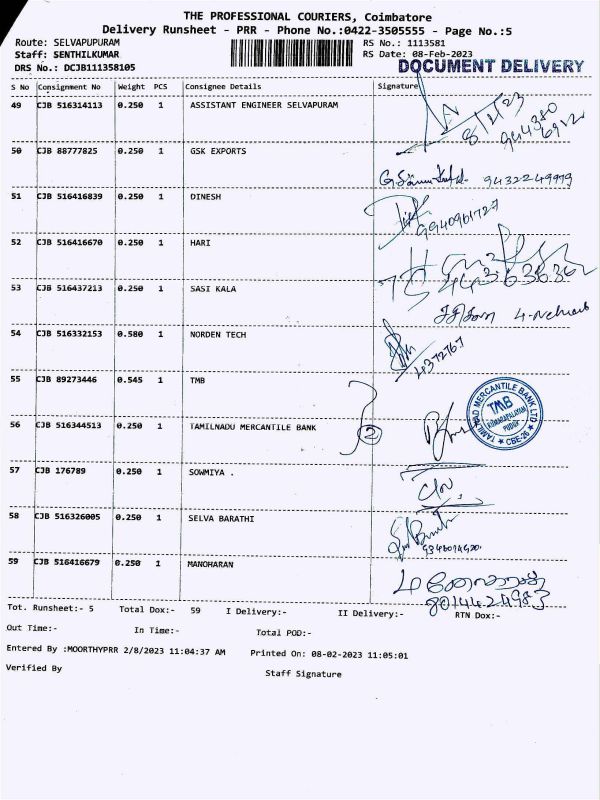 THE PROFESSIONAL COURIERS, Coimbatore
Delivery Runsheet - PRR - Phone No.:0422-3505555 - Page No.:5
Route: SELVAPUPURAM RS No.: 1113581
Staff: SENTHILKUMAR RS Date: 08-Feb-2023
DRS No.: DCJB111358105 DOCUMENT DELIVERY
S No Consignment No Weight PCS Consignee Details Signature
49 CJB 516314113 0.250 1 ASSISTANT ENGINEER SELVAPURAM
50 CJB 88777825 0.250 1 GSK EXPORTS
9432249979
51 CJB 516416839 0.250 1 DINESH
9940961727
52 CJB 516416670 0.250 1 HARI
53 CJB 516437213 0.250 1 SASI KALA
54 CJB 516332153 0.580 1 NORDEN TECH
55 CJB 89273446 0.545 1 TMB
TAMILNAD MERCANTILE BANK LTD
TMB
CBE-26
56 CJB 516344513 0.250 1 TAMILNADU MERCANTILE BANK
2
57 CJB 176789 0.250 1 SOWMIYA .
58 CJB 516326005 0.250 1 SELVA BARATHI
59 CJB 516416679 0.250 1 MANOHARAN
8014424983
Tot. Runsheet:- 5 Total Dox:- 59 I Delivery:- II Delivery:- RTN Dox:-
Out Time:- In Time:- Total POD:-
Entered By :MOORTHYPRR 2/8/2023 11:04:37 AM Printed On: 08-02-2023 11:05:01
Verified By Staff Signature